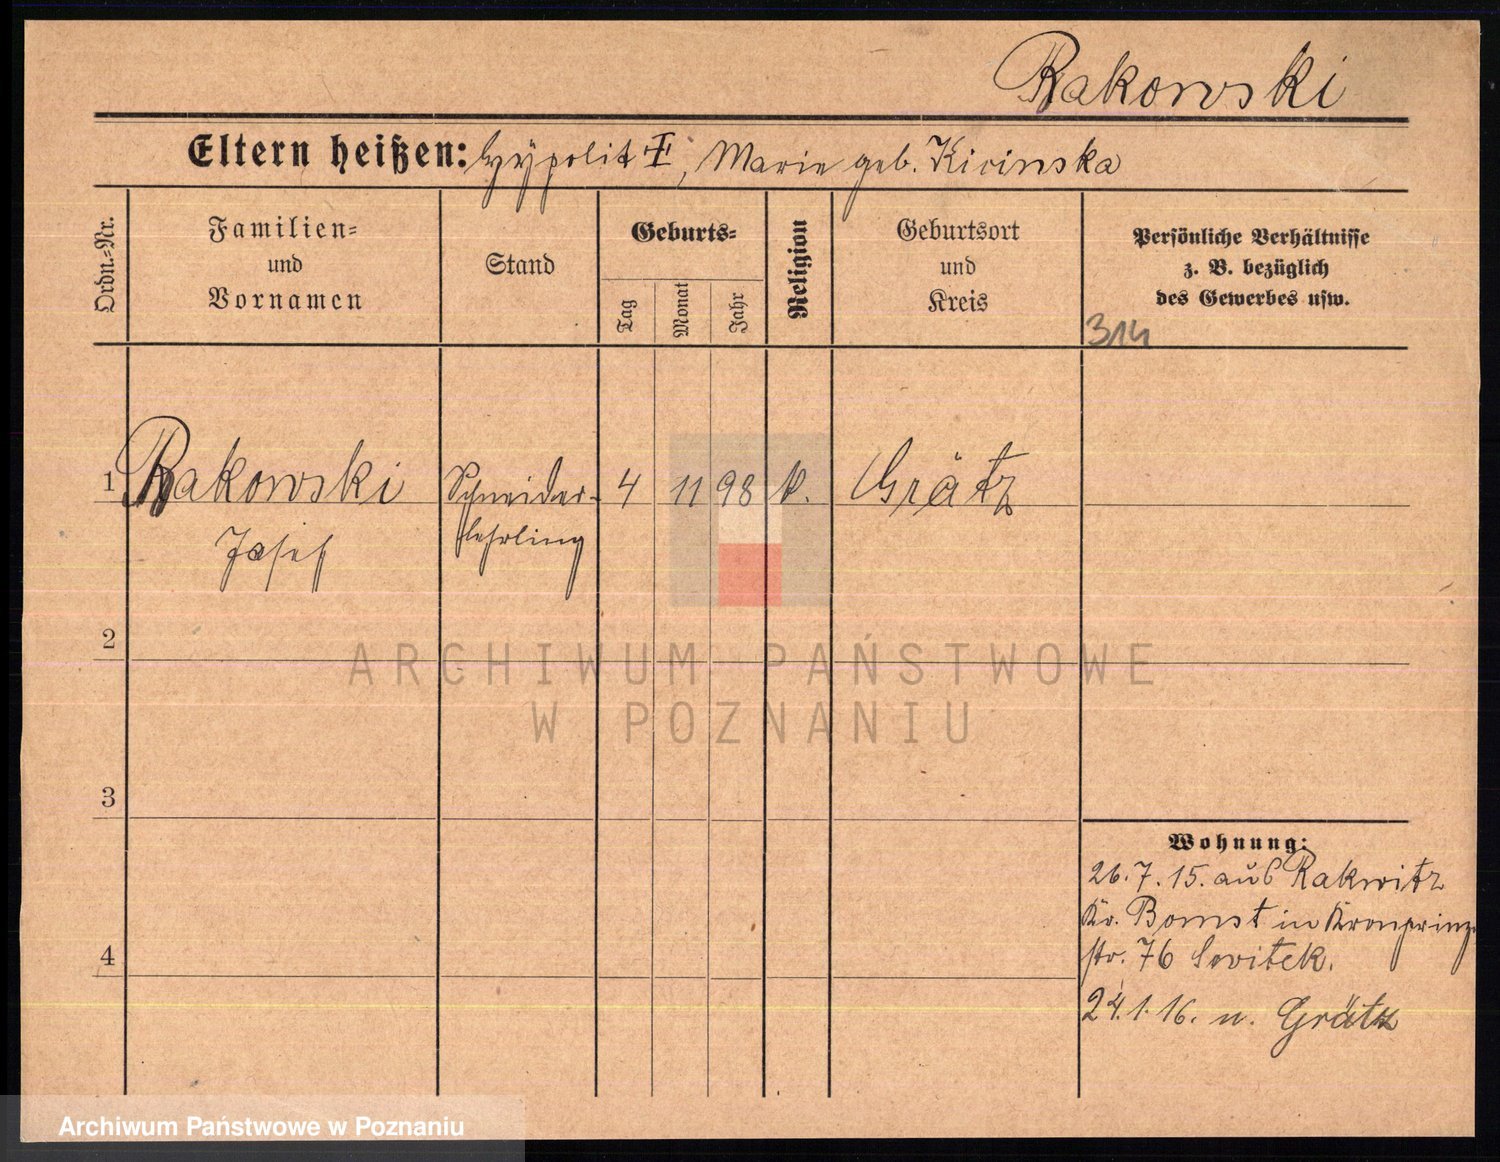 Rakowski
Eltern heißen: Hypolit †, Marie geb. Kicinska
Ordn.-Nr.
Familien-
und
Vornamen
Stand
Geburts-
Tag
Monat
Jahr
Religion
Geburtsort
und
Kreis
Persönliche Verhältnisse
z. B. bezüglich
des Gewerbes usw.
314
1 Rakowski Schneider- 4 11 98 k. Grätz
Josef lehrling
2
3
4
ARCHIWUM PAŃSTWOWE
W POZNANIU
Wohnung:
26.7.15. aus Rakwitz
Kr. Bomst in Kronprinz-
str. 76 Switek.
24.1.16. n. Grätz
Archiwum Państwowe w Poznaniu